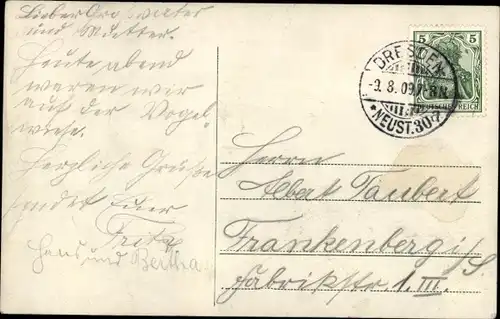 Lieber Großvater
und Mutter.
Heute abend
waren wir
auf der Vogel-
wiese.
Herzliche Grüße
sendet Euer
Fritz
Hans und Bertha
5 5
DEUTSCHES REICH
DRESDEN
9.8.09. 7-8N.
*NEUST. 30*
Herrn
Albert Taubert
Frankenberg i/S.
Fabrikstr. 1. III.